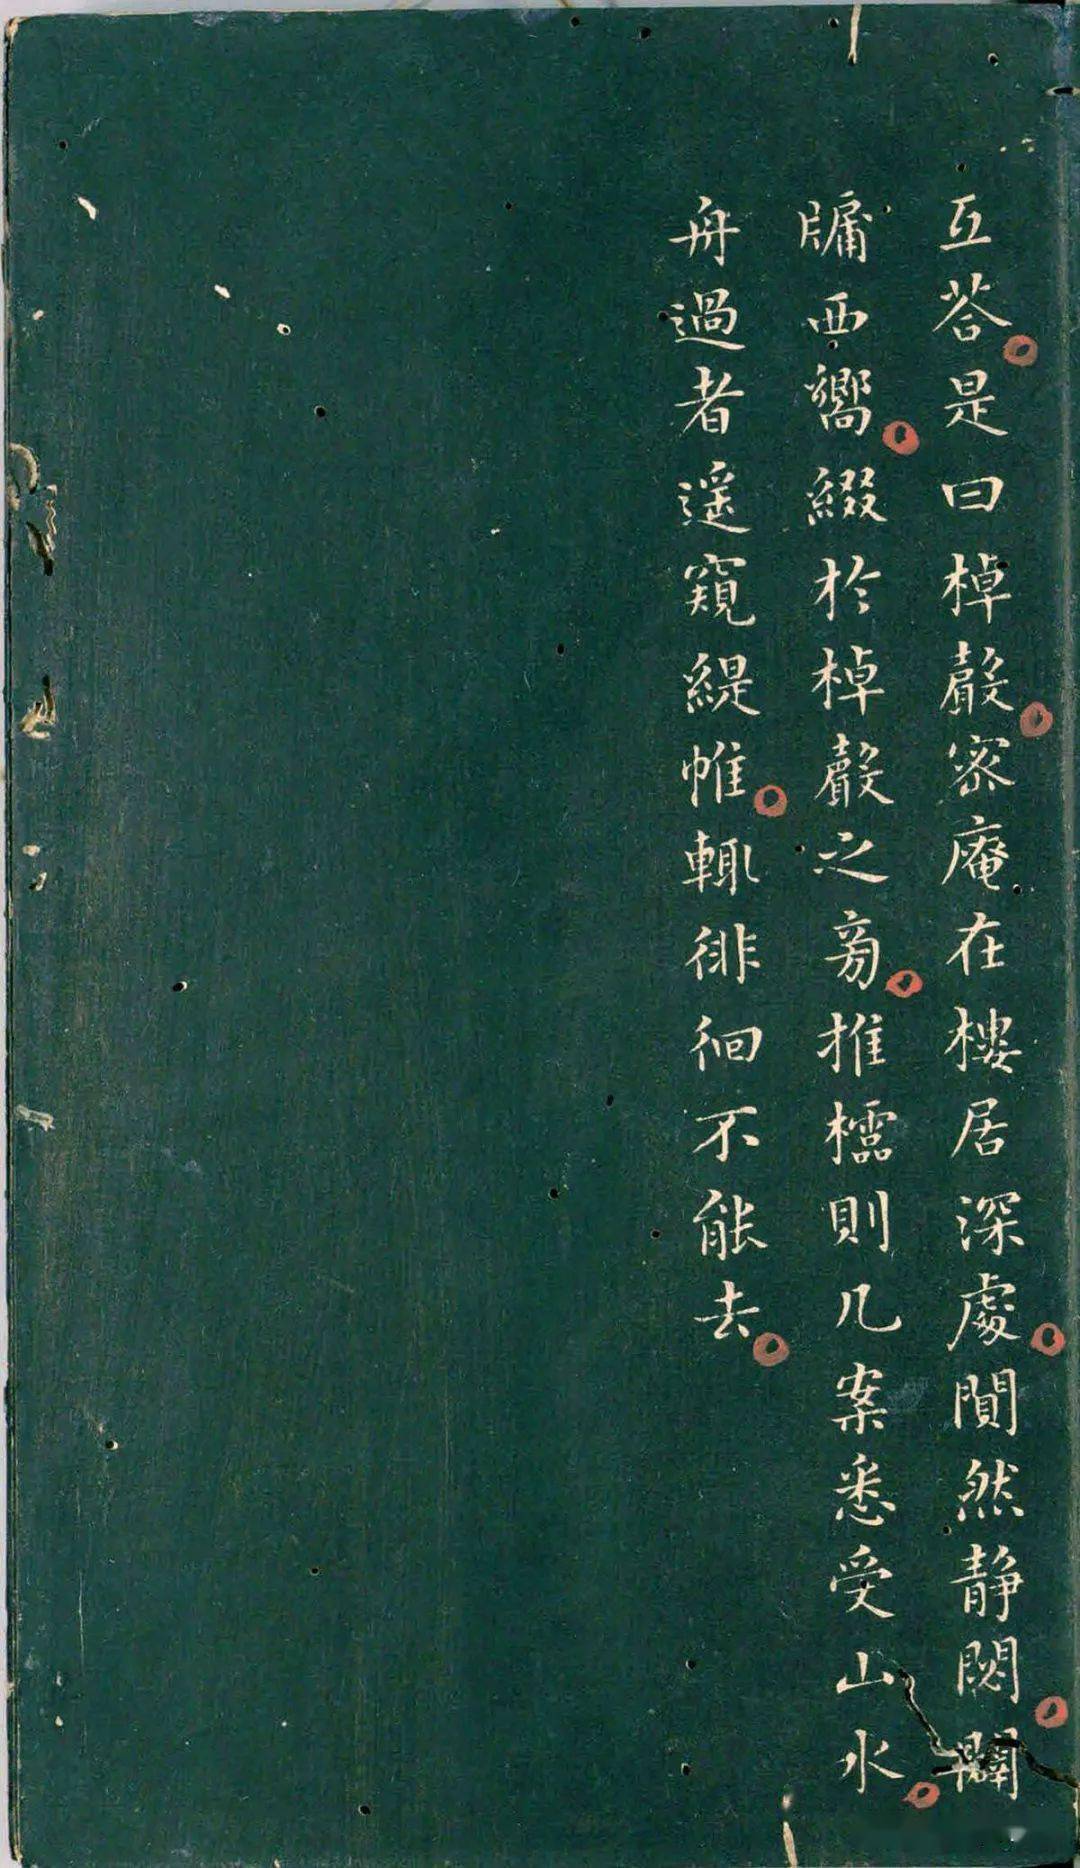 互荅是曰棹鷇宻庵在樓居深處閴然靜閟闢
牖西嚮綴於棹鷇之旁推櫺則几案悉受山水
舟過者遥窺緹帷輒徘徊不能去